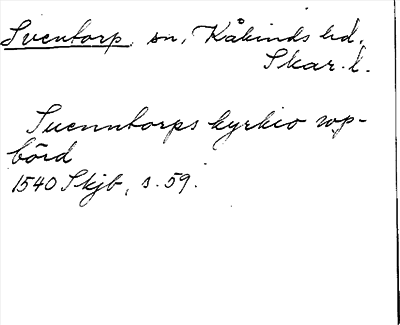 Sventorp, sn, Kåkinds hd.
Skar. l.
Suenntorps kyrkio wp-
börd
1540 Skjb, s. 59.